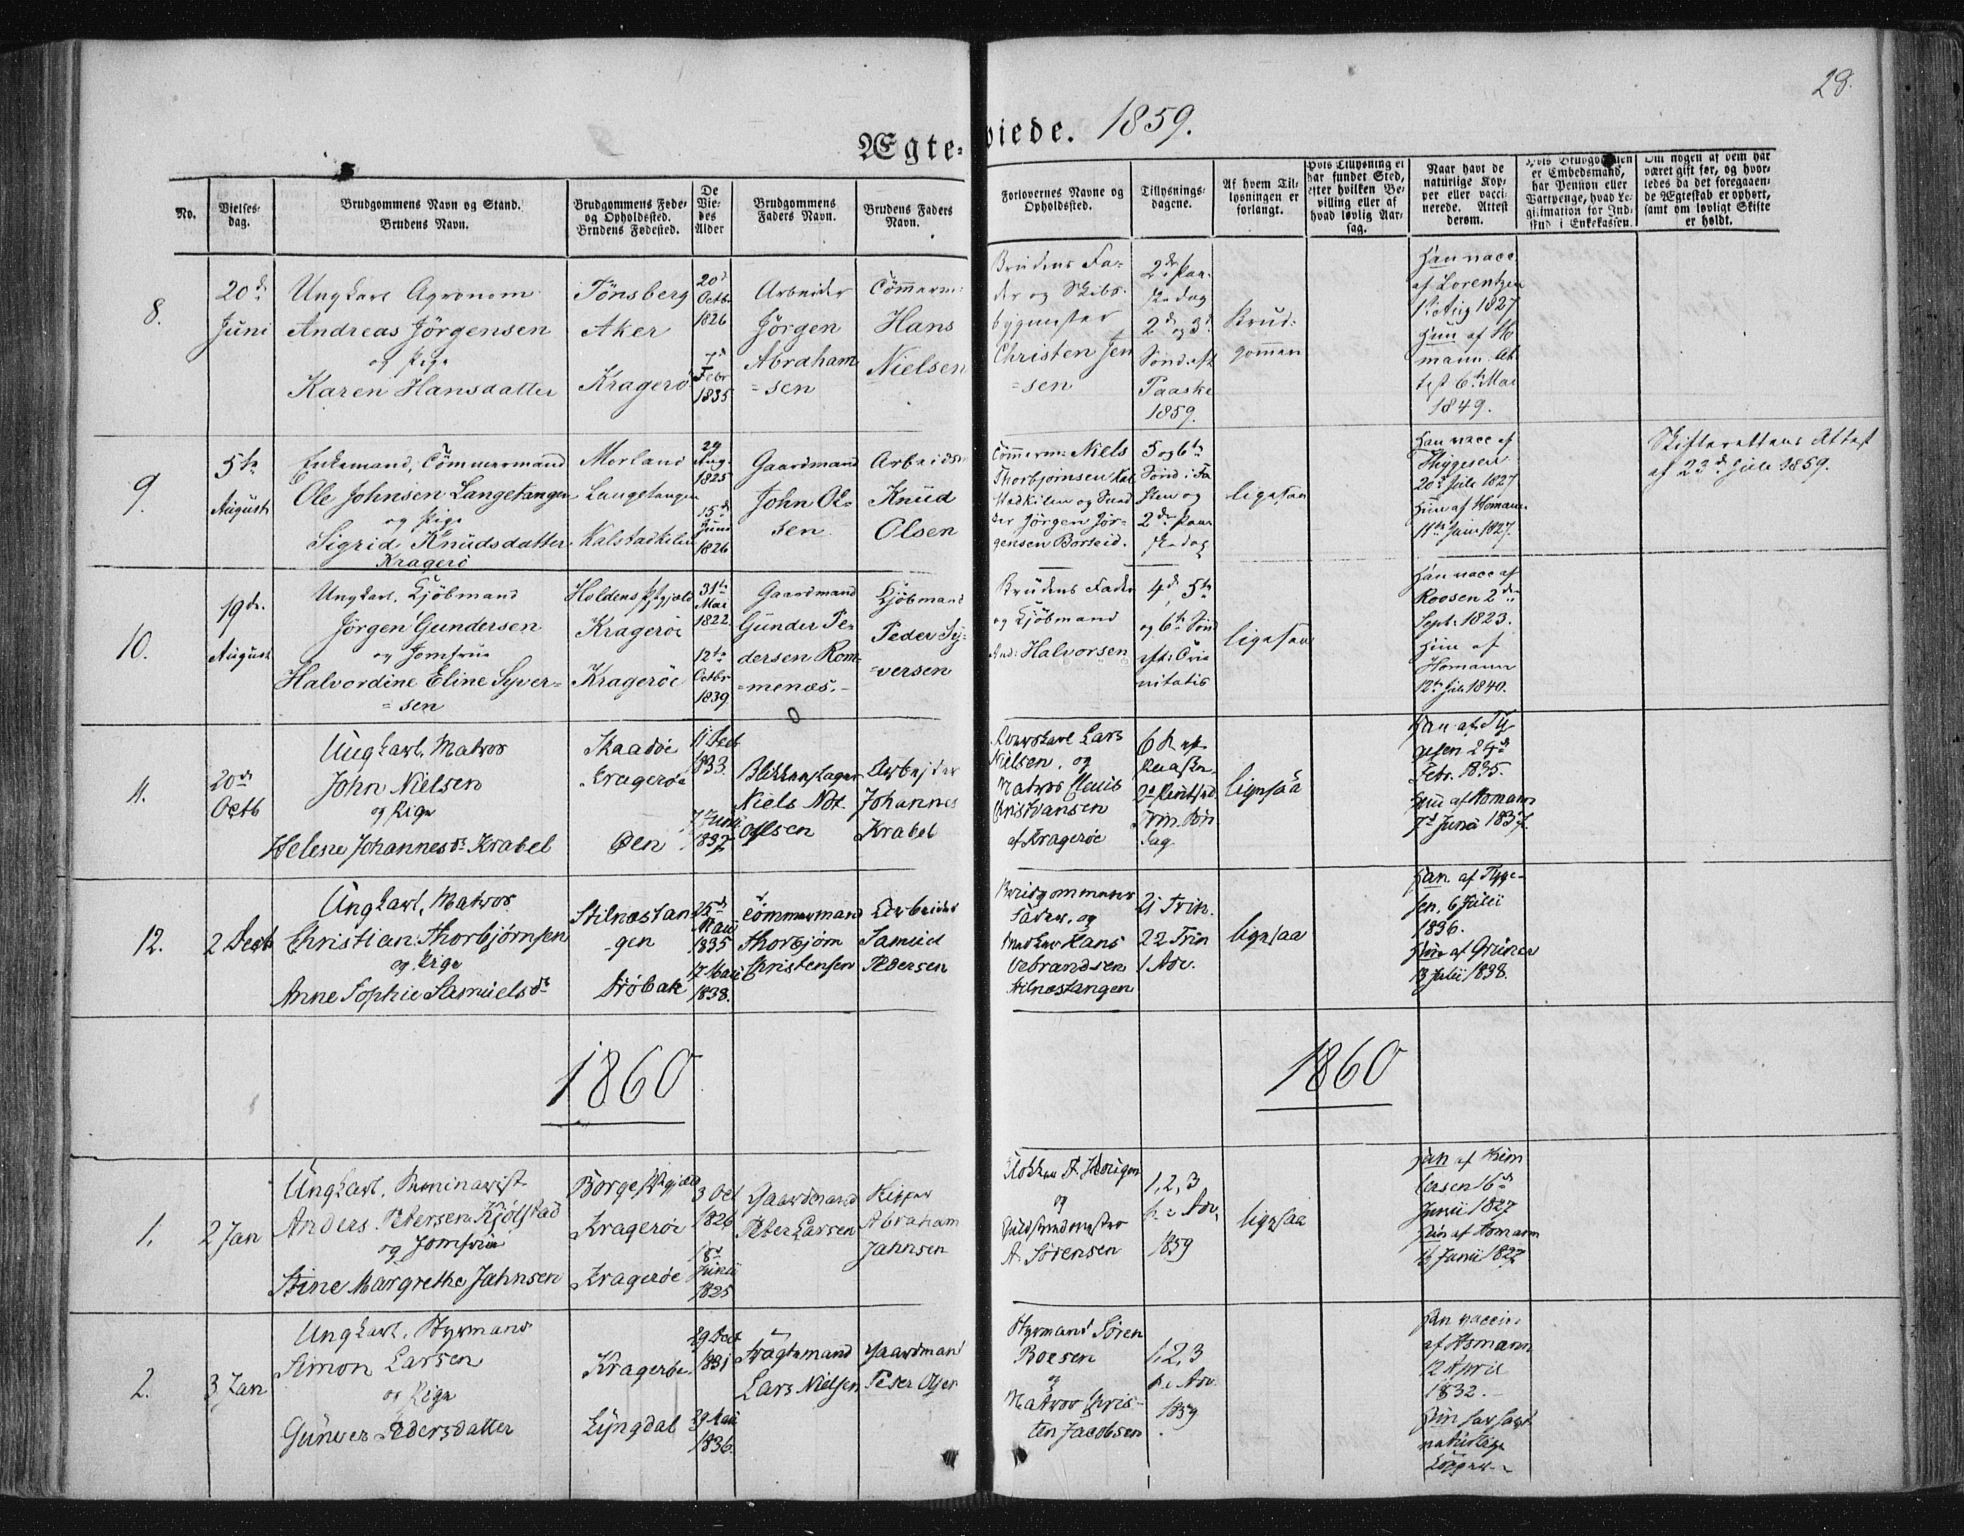 28.
Ægte-viede. 1859.
No.
Vielses-
dag.
Brudgommens Navn og Stand.
Brudens Navn.
Brudgommens Føde-
og Opholdssted.
Brudens Fødested.
De
Vie-
des
Alder
Brudgommens
Faders Navn.
Brudens Faders
Navn.
Forlovernes Navne og
Opholdssted.
Tillysnings-
dagene.
Af hvem Til-
lysningen er
forlangt.
Hvis Tillysning ei
har fundet Sted,
efter hvilken Be-
villing eller af
hvad lovlig Aar-
sag.
Naar havt de
naturlige Kop-
per eller vacci-
nerede. Attest
derom.
Hvis Brudgommen
er Embedsmand,
har Pension eller
Vartpenge, hvad Le-
gitimation for Ind-
skud i Enkekassen.
Om nogen af dem har
været gift før, og hvor-
ledes da det foregaaen-
de Ægteskab er ophørt,
samt om lovligt Skifte
er holdt.
8.
20de
Juni
Ungkarl Agronom
Andreas Jörgensen
og Pige
Karen Hansdatter
Tönsberg
Aker
Krageröe
20d
Octb
1826
7d
Febr
1835
Arbeider
Jörgen
Abraham
=sen
Tömmerm:
Hans
Nielsen
Brudens Fa-
der og Skibs-
bygmester
Christen Jen
=sen
2de Paa-
skedag
2d og 3d
Sönd. eft
Paaske
1859.
Brud-
gommen
Han vacc
af Lorentzen
1st Aug 1827
Hun af Ho
mann. At
test 6te Mai
1849.
9.
5te
August
Enkemand, Tömmermand
Ole Johnsen Langetangen
og Pige
Sigrid Knudsdatter
Kragerö
Morland
Langetangen
Kalstadkilen
29
Aug.
1825
15d
Juni
1826
Gaardmand
John Ol-
sen
Arbeider
Knud
Olsen
Tömmerm: Niels
Thorbjörnsen Kal
stadkilen og Snед
ker Jörgen Jör-
gensen Borteid.
5 og 6te
Sönd i Fa
sten og
2de Paa
skedag
ligesaa
Han vacc af
Thygesen
20d Juli 1827
Hun af Homann
11te Juni 1827.
Skifterettens Attest
af 23d Juli 1859.
10.
19de
August
Ungkarl, Kjöbmand
Jörgen Gundersen
og Jomfrue
Halvordine Eline Syver-
=sen
Holdens Pgjæld
Krageröe
Krageröe
31te
Mai
1822.
12te
Octbr
1839
Gaardmand
Gunder Pe-
dersen Rom-
=menæs.
Kjöbmand
Peder Sy-
=versen
Brudens Fader
og Kjöbmand
And: Halvorsen
4d, 5te
og 6te Sönd
eft: Tri
nitatis
ligesaa
Han vacc af
Roosen 2den
Sept. 1823.
Hun af
Homann
12te Juli 1840.
11.
20de
Octb
Ungkarl, Matros
John Nielsen
og Pige
Helene Johannesdr Krabel
Skaadöe
Krageröe
Öen
11 Decb
1833.
7 Juni
1837
Blikkenslager
Niels Not.
Olsen
Arbejder
Johannes
Krabel
Lars
Nielsen, og
Matros Claus
Christiansen
af Krageröe
ligesaa
Han af Ty
gesen 24de
Febr. 1835.
Hun af Homann
7d Juni 1837.
12.
2 Decb
Ungkarl, Matros
Christian Thorbjörnsen
og Pige
Anne Sophie Samuelsdr
Stilnæstan
gen
Dröbak
25d
Maii
1835
17 Mai
1838.
Tömmermand
Thorbjörn
Christensen
Arbeider
Samuel
Pedersen
Brudgommens
Fader, og
Hans
Stilnæstangen
21 Trin.
22 Trin
1 Adv.
ligesaa
Han af Tyge-
sen, 6 Julii
1836.
Hun af Grüner
13 Julii 1838.
1860
1860
1.
2 Jan
Ungkarl, Seminarist
Anders Petersen Kjölstad
og Jomfrue
Stine Margrethe Jahnsen
Borge Pgjæld
Krageröe
Krageröe
3 Oct
1826
18d
Junii
1825
Gaardmand
Peter Larsen
Skipper
Abraham
Jahnsen
Klokker
og
Guldsmedmester
A. Sörensen
1, 2, 3
S. i Adv.
1859
ligesaa
Han af Kim
16d
Junii 1827
Hun af Homann
16 Junii 1827
2.
3 Jan
Ungkarl, Styrmand
Simon Larsen
og Pige
Gunver Pedersdatter
Krageröe
Lyngdal
29 Oct
1831
29 Maii
1836
Fragtemand
Lars Nielsen
Gaardmand
Peder Olsen
Styrmand Sören
Boesen
og
Matros Chris-
ten Jacobsen
1, 2, 3
S. i Adv.
1859
Han vaccin.
af Homann
12 April
1832.
Hun har havt
naturlige
Kopper